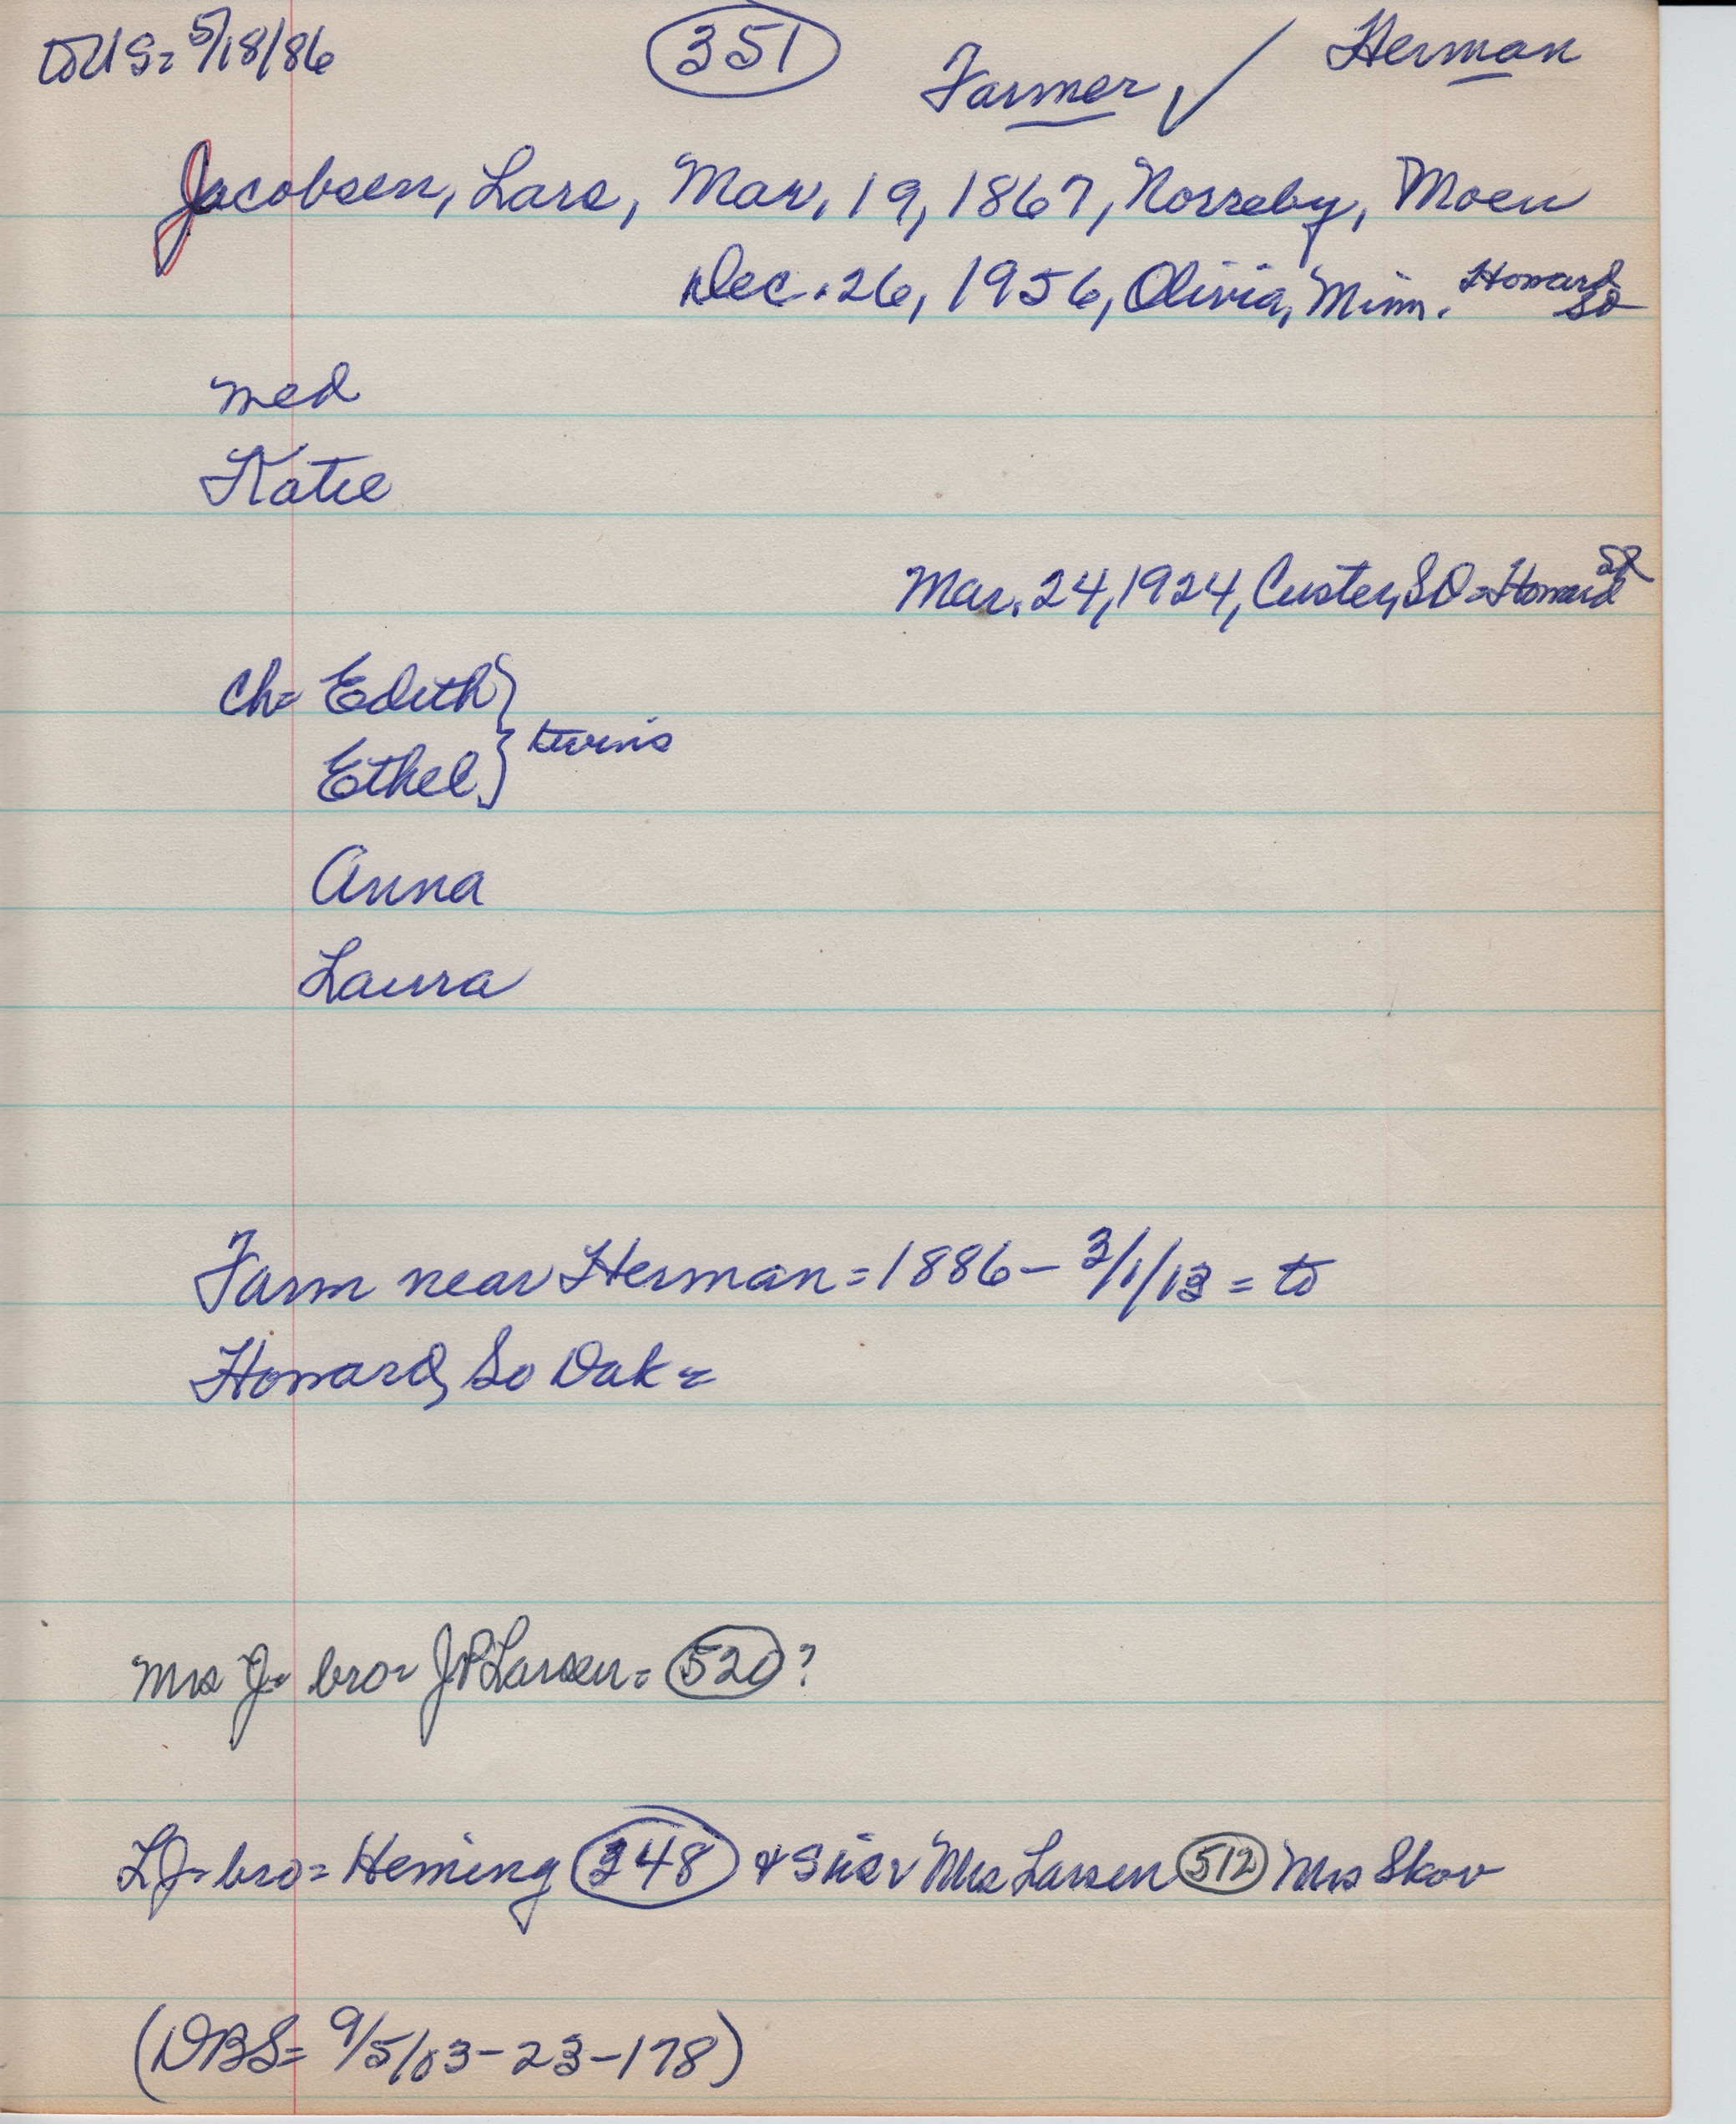 to US = 5/18/86
351
Farmer ✓
Herman
Jacobsen, Lars, Mar, 19, 1867, Norreby, Moen
Dec. 26, 1956, Olivia, Minn. Howard SD
med
Katie
Mar. 24, 1924, Custer, SD = Howard SD
ch = Edith
Ethel } twins
Anna
Laura
Farm near Herman = 1886 - 3/1/13 = to
Howard, So Dak =
Mrs J = bro = JP Larsen = 520 ?
LJ = bro = Heming 348 & sis = Mrs Larsen 512 Mrs Skov
(DBS = 9/5/03 - 23 - 178)